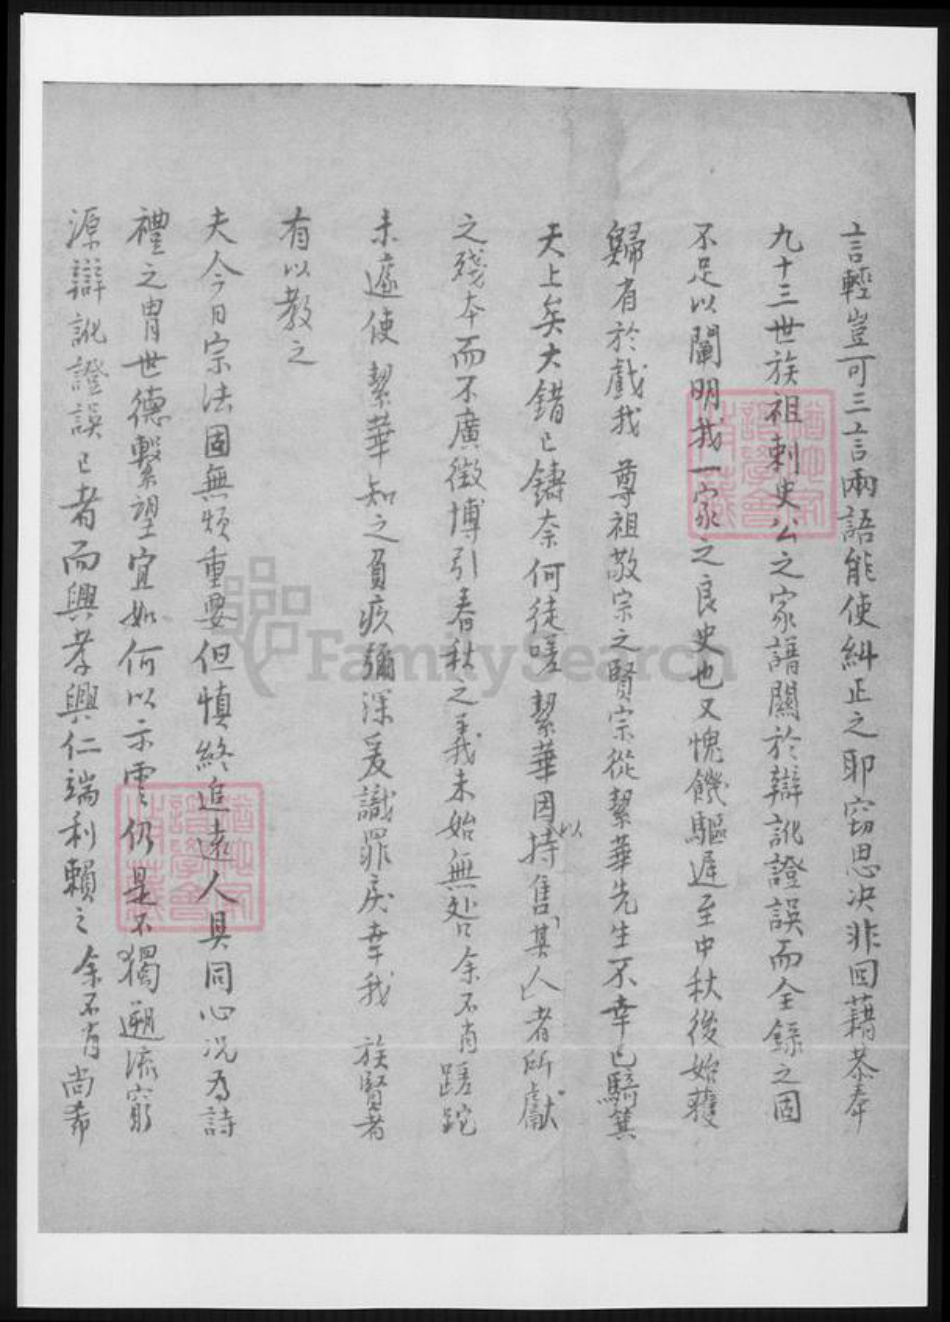 言輕豈可三言兩語能使糾正之耶窃思决非回藉恭奉
九十三世族祖刺史公之家譜關於辯訛證誤而全錄之固
不足以闡明我一家之良史也又愧饑驅遲至中秋後始獲
歸省於戲我 尊祖敬宗之賢宗從絜華先生不幸已騎箕
天上矣大錯已鑄奈何徒嗟絜華因持以售其人者所獻
之殘本而不廣徵博引春秋之義未始無咎余不肖蹉跎
未遽使絜華知之負疚彌深爰識罪戾幸我 族賢者
有以教之
夫今日宗法固無煩重要但慎終追遠人具同心况為詩
禮之胄世德繫望宜如何以示雲仍是不獨遡流窮
源辯訛證誤已者而興孝興仁端利賴之余不肖尚希
FamilySearch